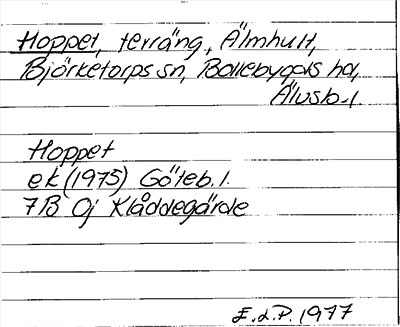 Hoppet, terräng, Älmhult,
Björketorps sn, Bollebygds hd,
Älvsb. l
Hoppet
ek (1975) Göteb. l.
7B 0j Klåddegärde
E.d.P. 1977